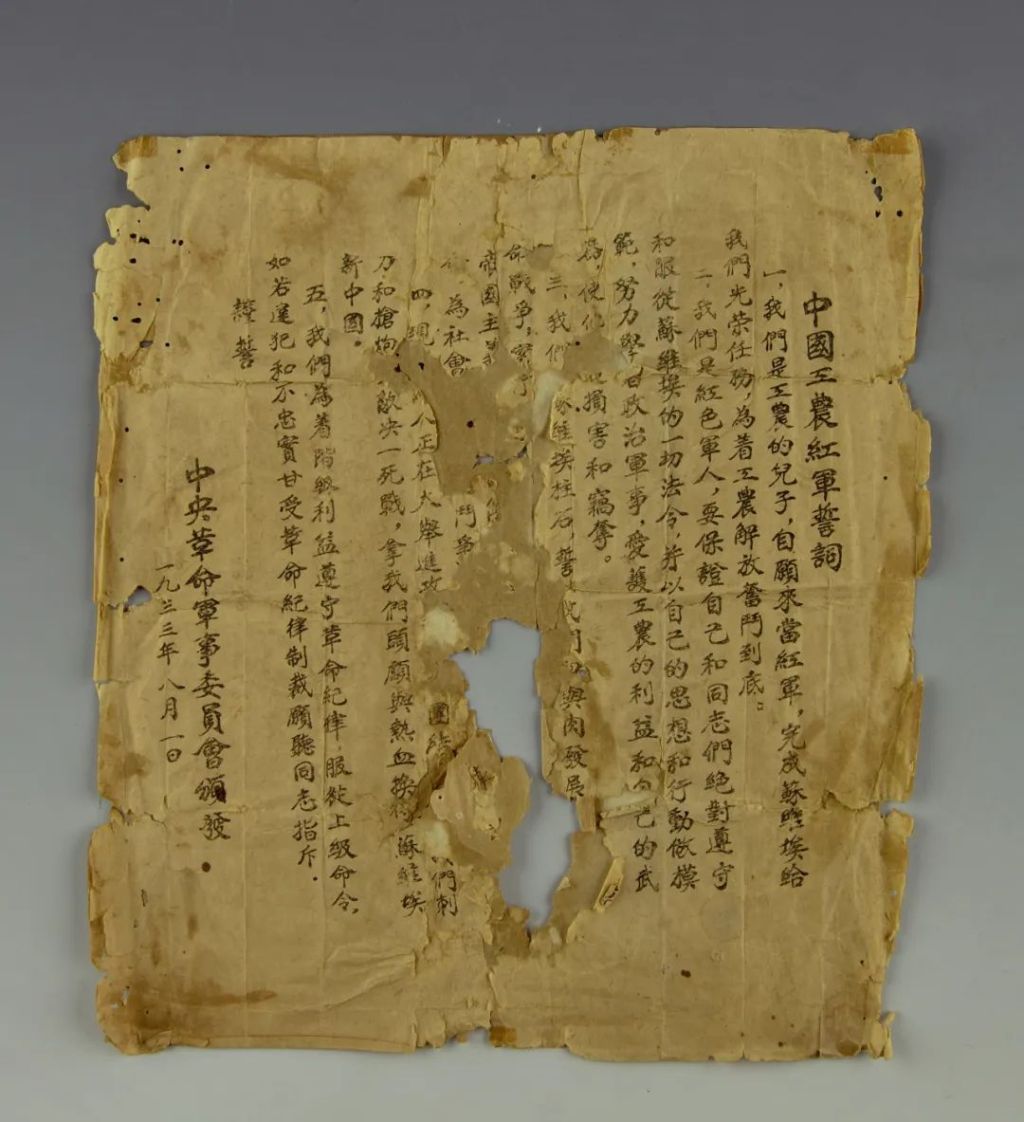 中國工農紅軍誓詞
一，我們是工農的兒子，自願來當紅軍，完成蘇維埃給
我們光荣任務，為着工農解放奮鬥到底。
二，我們是紅色軍人，要保證自己和同志們絕對遵守
和服從蘇維埃的一切法令，并以自己的思想和行動做模
範，努力學習政治軍事，愛護工農的利益和自己的武
器，使他損害和竊奪。
三，我們維埃柱石，誓與肉發展
命戰爭，
帝國主義鬥爭
為社會團結
四，現人正在大舉進攻我們刺
刀和槍炮敵决一死戰，拿我們頭顱與熱血換得蘇維埃
新中國。
五，我們為着階級利益遵守革命紀律，服從上級命令，
如若違犯和不忠實甘受革命紀律制裁願聽同志指斥。
謹誓
中央革命軍事委員會頒發
一九三三年八月一日